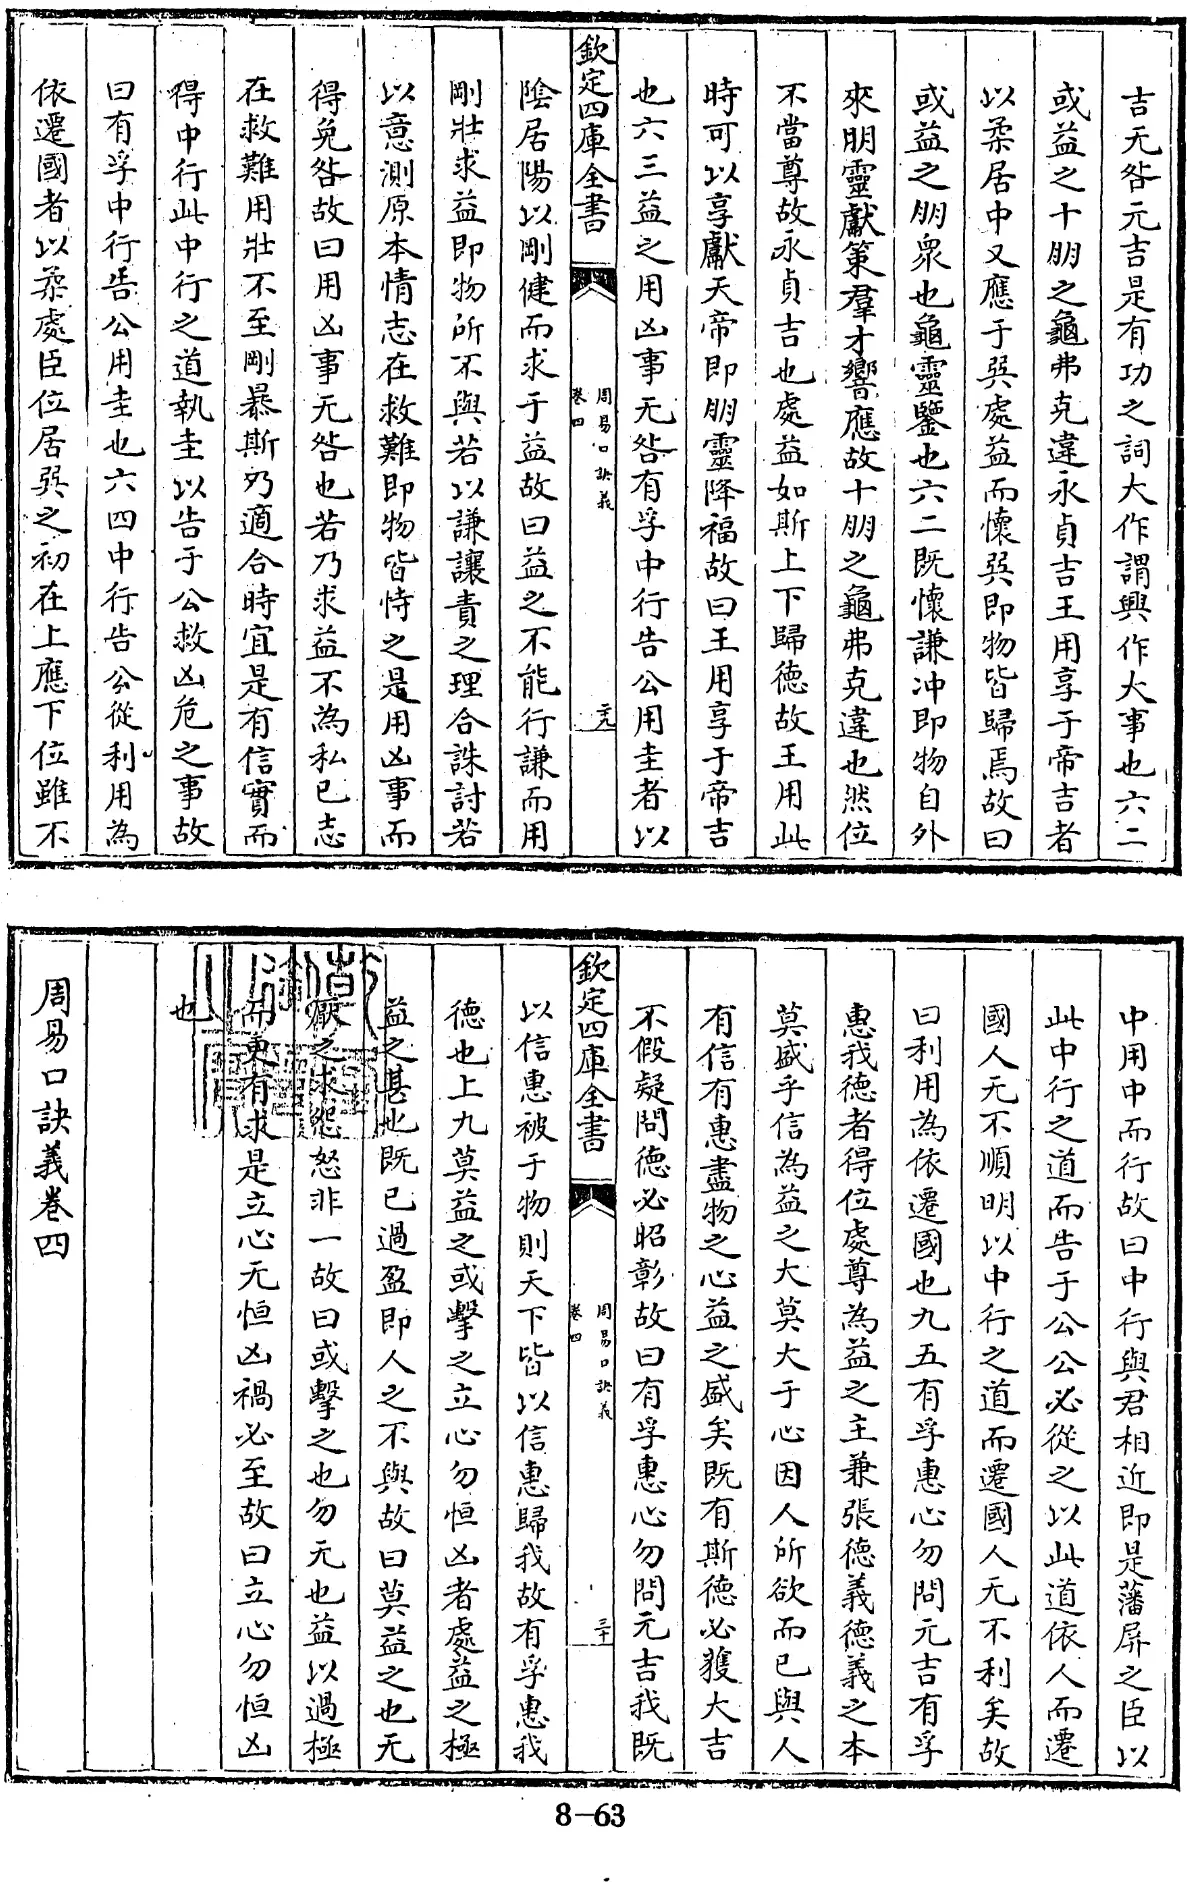 吉无咎元吉是有功之詞大作謂興作大事也六二
或益之十朋之龜弗克違永貞吉王用享于帝吉者
以柔居中又應于巽處益而懷巽即物皆歸焉故曰
或益之朋衆也龜靈鑒也六二既懷謙冲即物自外
來朋靈獻策羣才響應故十朋之龜弗克違也然位
不當尊故永貞吉也處益如斯上下歸德故王用此
時可以享獻天帝即朋靈降福故曰王用享于帝吉
也六三益之用凶事无咎有孚中行告公用圭者以
欽定四庫全書
周易口訣義
卷四
二十九
陰居陽以剛健而求于益故曰益之不能行謙而用
剛壯求益即物所不與若以謙讓責之理合誅討若
以意測原本情志在救難即物皆恃之是用凶事而
得免咎故曰用凶事无咎也若乃求益不為私已志
在救難用壯不至剛暴斯乃適合時宜是有信實而
得中行此中行之道執圭以告于公救凶危之事故
曰有孚中行告公用圭也六四中行告公從利用為
依遷國者以柔處臣位居巽之初在上應下位雖不
中用中而行故曰中行與君相近即是藩屏之臣以
此中行之道而告于公公必從之以此道依人而遷
國人无不順明以中行之道而遷國人无不利矣故
曰利用為依遷國也九五有孚惠心勿問元吉有孚
惠我德者得位處尊為益之主兼張德義德義之本
莫盛乎信為益之大莫大于心因人所欲而已與人
有信有惠盡物之心益之盛矣既有斯德必獲大吉
不假疑問德必昭彰故曰有孚惠心勿問元吉我既
欽定四庫全書
周易口訣義
卷四
三十
以信惠被于物則天下皆以信惠歸我故有孚惠我
德也上九莫益之或擊之立心勿恒凶者處益之極
益之甚也既已過盈即人之不與故曰莫益之也无
厭之求怨怒非一故曰或擊之也勿无也益以過極
而更有求是立心无恒凶禍必至故曰立心勿恒凶
也
周易口訣義卷四
8-63